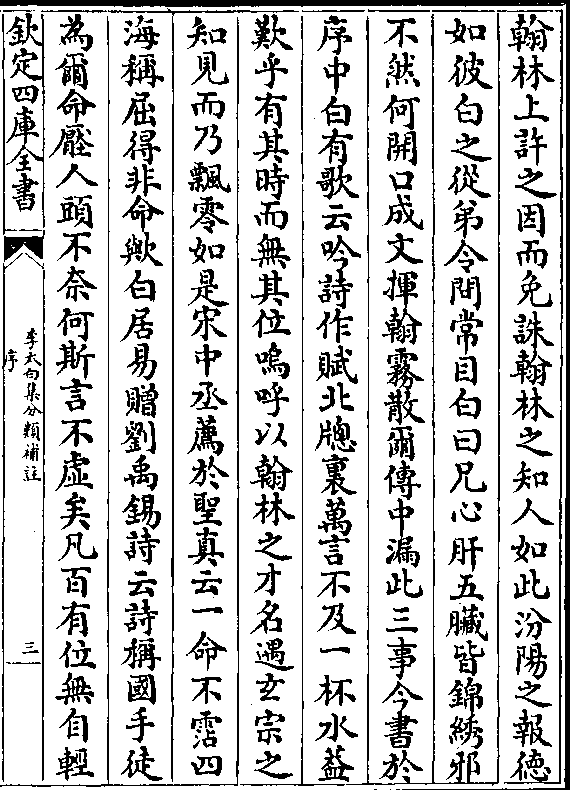 翰林上許之因而免誅翰林之知人如此汾陽之報德
如彼白之從弟令問常目白曰兄心肝五臟皆錦繡邪
不然何開口成文揮翰霧散爾傳中漏此三事今書於
序中白有歌云吟詩作賦北牕裏萬言不及一杯水葢
歎乎有其時而無其位嗚呼以翰林之才名遇玄宗之
知見而乃飄零如是宋中丞薦於聖真云一命不霑四
海稱屈得非命歟白居易贈劉禹錫詩云詩稱國手徒
為爾命壓人頭不奈何斯言不虛矣凡百有位無自輕
欽定四庫全書
李太白集分類補註
序
三